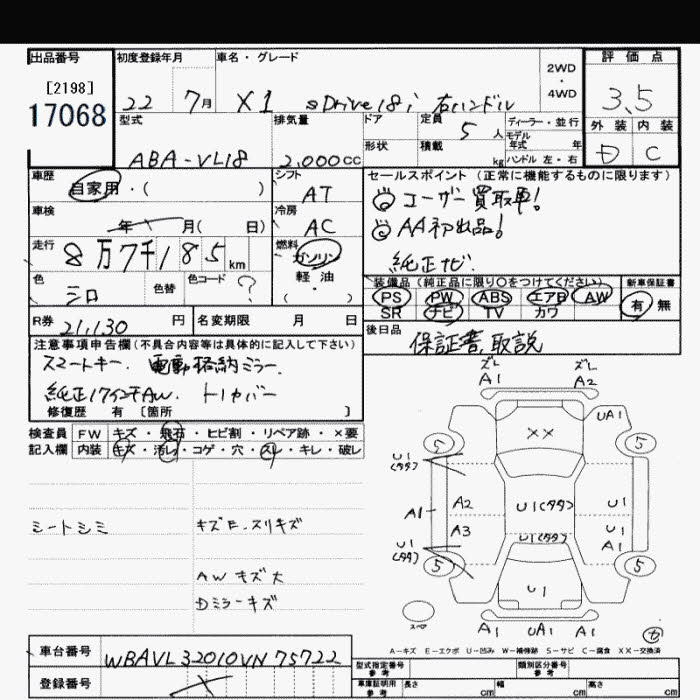 出品番号
[2198]
17068
初度登録年月
22 7月
車名・グレード
X1 sDrive18i 右ハンドル
2WD
・
4WD
評価点
3.5
外装 内装
D C
型式
ABA-VL18
排気量
2,000cc
ドア
形状
定員 5人
積載 kg
ディーラー・並行
モデル
年式 年
ハンドル 左・右
車歴
自家用・( )
シフト
AT
車検
年 月( 日)
冷房
AC
走行
8万7千185km
燃料
ガソリン
軽・油
色
シロ
色替
色コード
?
R券
21,130円
名変期限 月 日
セールスポイント(正常に機能するものに限ります)
◎ユーザー買取車!
◎AA初出品!
純正ナビ.
装備品(純正品に限り○をつけてください)
新車保証書
PS PW ABS エアB AW
SR ナビ TV カワ
有・無
後日品
保証書、取説
注意事項申告欄(不具合内容等は具体的に記入して下さい)
スマートキー. 電動格納ミラー.
純正17インチAW. トノカバー
修復歴 有 〔箇所 〕
検査員 FW キズ・飛石・ヒビ割・リペア跡・×要
記入欄 内装 キズ・汚れ・コゲ・穴・スレ・キレ・破レ
シートシミ
キズE.スリキズ
AWキズ大
Dミラーキズ
ズレ ズレ
A1 A2
UA1
XX
5 5
U1
(タタ)
A1
A2
U1(タタ)
U1
A3
U1(タタ)
U1
A1
U1
(タタ)
5 5
U1
スペア
A1 UA1 A1
A-キズ E-エクボ U-凹み W-補修跡 S-サビ C-腐食 XX-交換済
車台番号
WBAVL32010VN75722
登録番号
型式指定番号
参考
類別区分番号
参考
車庫証明用
参考
長さ cm 幅 cm 高さ cm